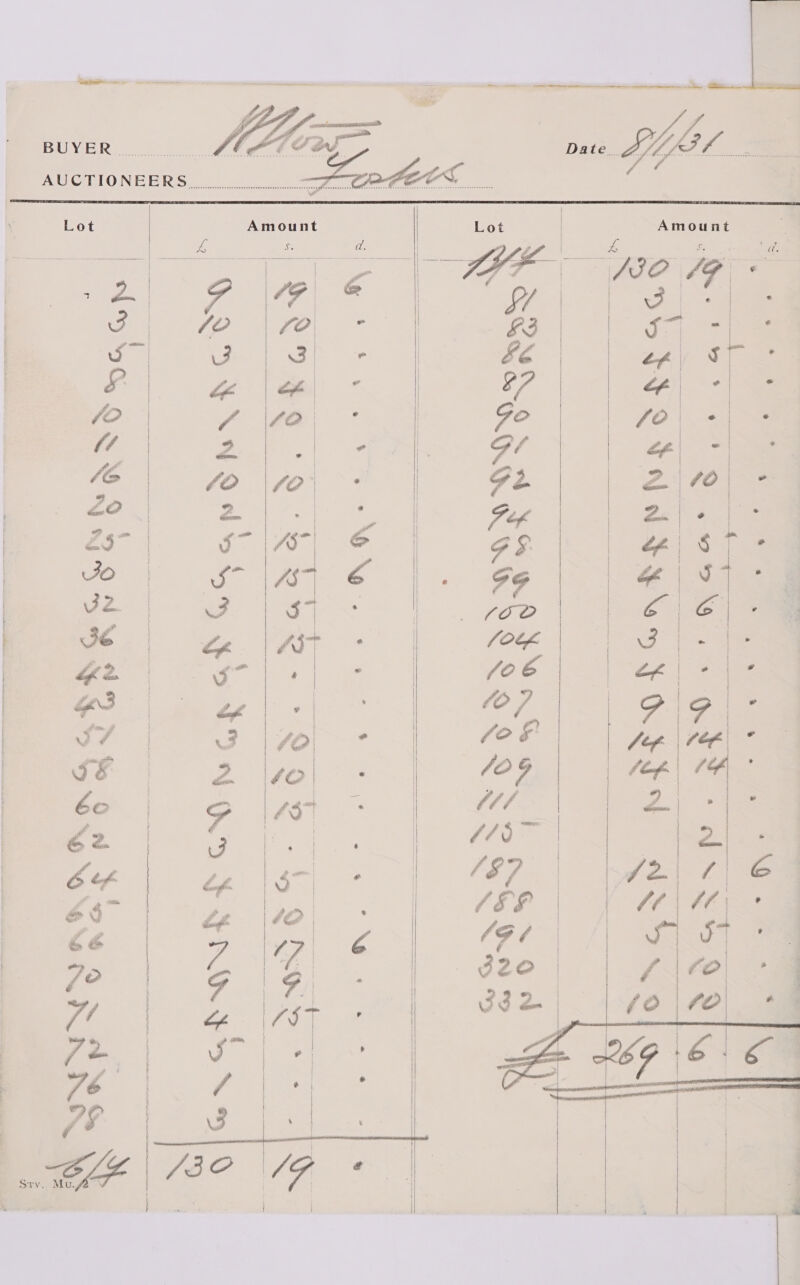 BUYER
Date 8/1/31
AUCTIONEERS
Lot Amount Lot Amount
£ s. d. £ s. d.
2 9 19 6
3 10 10 -
5 3 3 -
8 4 4 -
10 1 10 -
11 2 - -
16 10 10 -
20 2 - -
25 5 15 6
30 5 15 6
32 3 5 -
36 4 15 -
42 5 - -
43 4 - -
57 3 10 -
58 2 10 -
60 9 15 -
62 3 - -
64 4 5 -
65 4 10 -
66 7 17 6
70 9 9 -
71 4 15 -
72 5 - -
76 1 - -
78 3 - -
C/F 130 19 -
Srv. Mu.
B/F 130 19 -
81 3 - -
83 5 - -
86 4 5 -
87 4 - -
90 10 - -
91 4 - -
92 2 10 -
94 2 - -
98 4 5 -
99 4 5 -
100 6 6 -
104 3 - -
106 4 - -
107 9 9 -
108 14 14 -
109 14 14 -
111 2 - -
115 2 -
187 12 1 6
188 11 11 -
191 5 5 -
320 1 10 -
332 10 10 -
£ 269 6 6